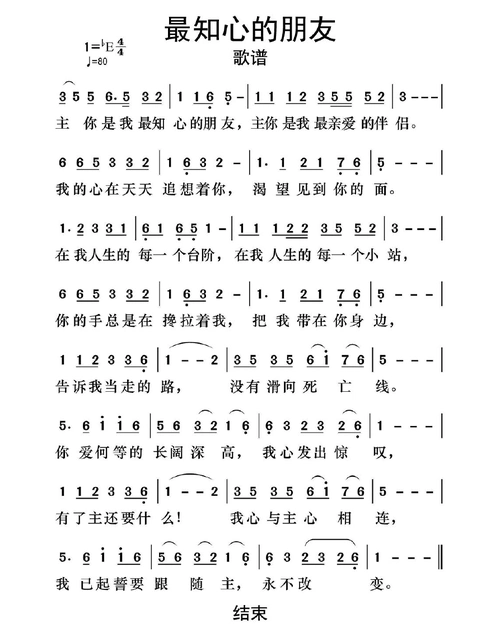 最知心的朋友
歌谱
1=♭E 4/4
♩=80
3 5 5 6. 5 3 2 | 1 1 6 5 - | 1 1 3 3 5 5 5 2 | 3 - - - |
主 你是我最知 心的朋友，主你是我最亲爱的伴 侣。
6 6 5 3 3 2 | 1 6 3 2 2 - | 1. 2 1 7 6 | 5 - - - |
我的心在天天 追想着你， 渴 望见到你的 面。
1. 2 3 3 1 | 6 1 6 5 - | 1 1 1 2 2 3 5 | 2 - - - |
在我人生的 每一个台阶，在我人生的每一个小 站，
6 6 5 3 3 2 | 1 6 3 2 - | 1. 2 1 7 6 | 5 - - - |
你的手总是在 搀拉着我， 把 我带在你身 边，
1 1 2 3 3 6 | 1 - - 2 | 3 5 3 5 6 1 7 6 | 5 - - - |
告诉我当走的 路， 没有滑向死 亡 线。
5. 6 1 1 6 | 5 4 3 2 | 1. 6 2 3 6 | 1 - - - |
你 爱何等的 长阔深 高，我心发出惊 叹，
1 1 2 3 3 6 | 1 - - 2 | 3 5 3 5 6 1 7 6 | 5 - - - |
有了主还要什么！ 我心与主心 相 连，
5. 6 1 1 6 | 5 6 5 2 3 - | 6 3 2 3 2 6 | 1 - - - ‖
我 已起誓要 跟 随 主，永不改 变。
结束